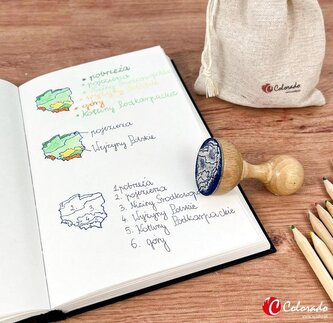 • pobrzeża
• pojezierza
• góry
• Kotliny Podkarpackie
pojezierza
Wyżyny Polskie
1. pobrzeża
2. pojezierza
3. Niziny Środkowopol
4. Wyżyny Polskie
5. Kotliny Podkarpackie
6. góry
Colorado
Colorado